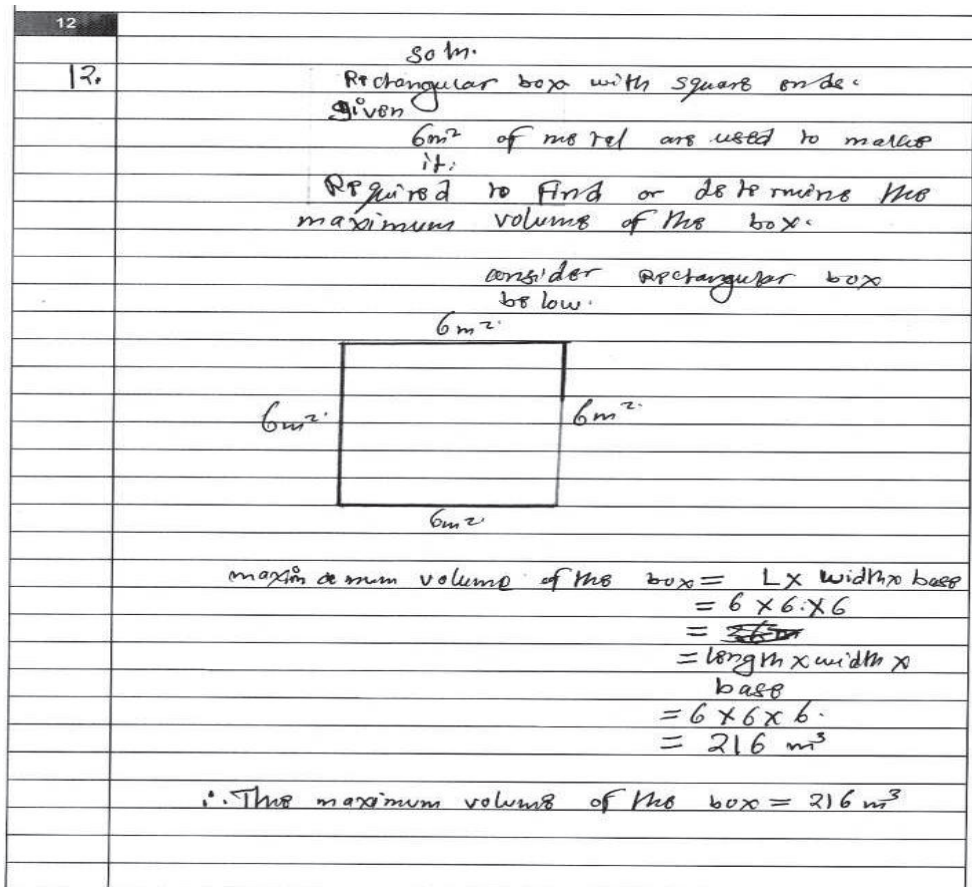 12
12.
Soln.
Rectangular box with square ends.
given
6m² of metel are used to make
it.
Required to Find or determine the
maximum volume of the box.
consider Rectangular box
below.
6m².
6m².
6m².
6m²
maximum volume of the box = L X width x base
= 6 X 6 X 6
= length x width x
base
= 6 X 6 x 6.
= 216 m³
∴ The maximum volume of the box = 216 m³